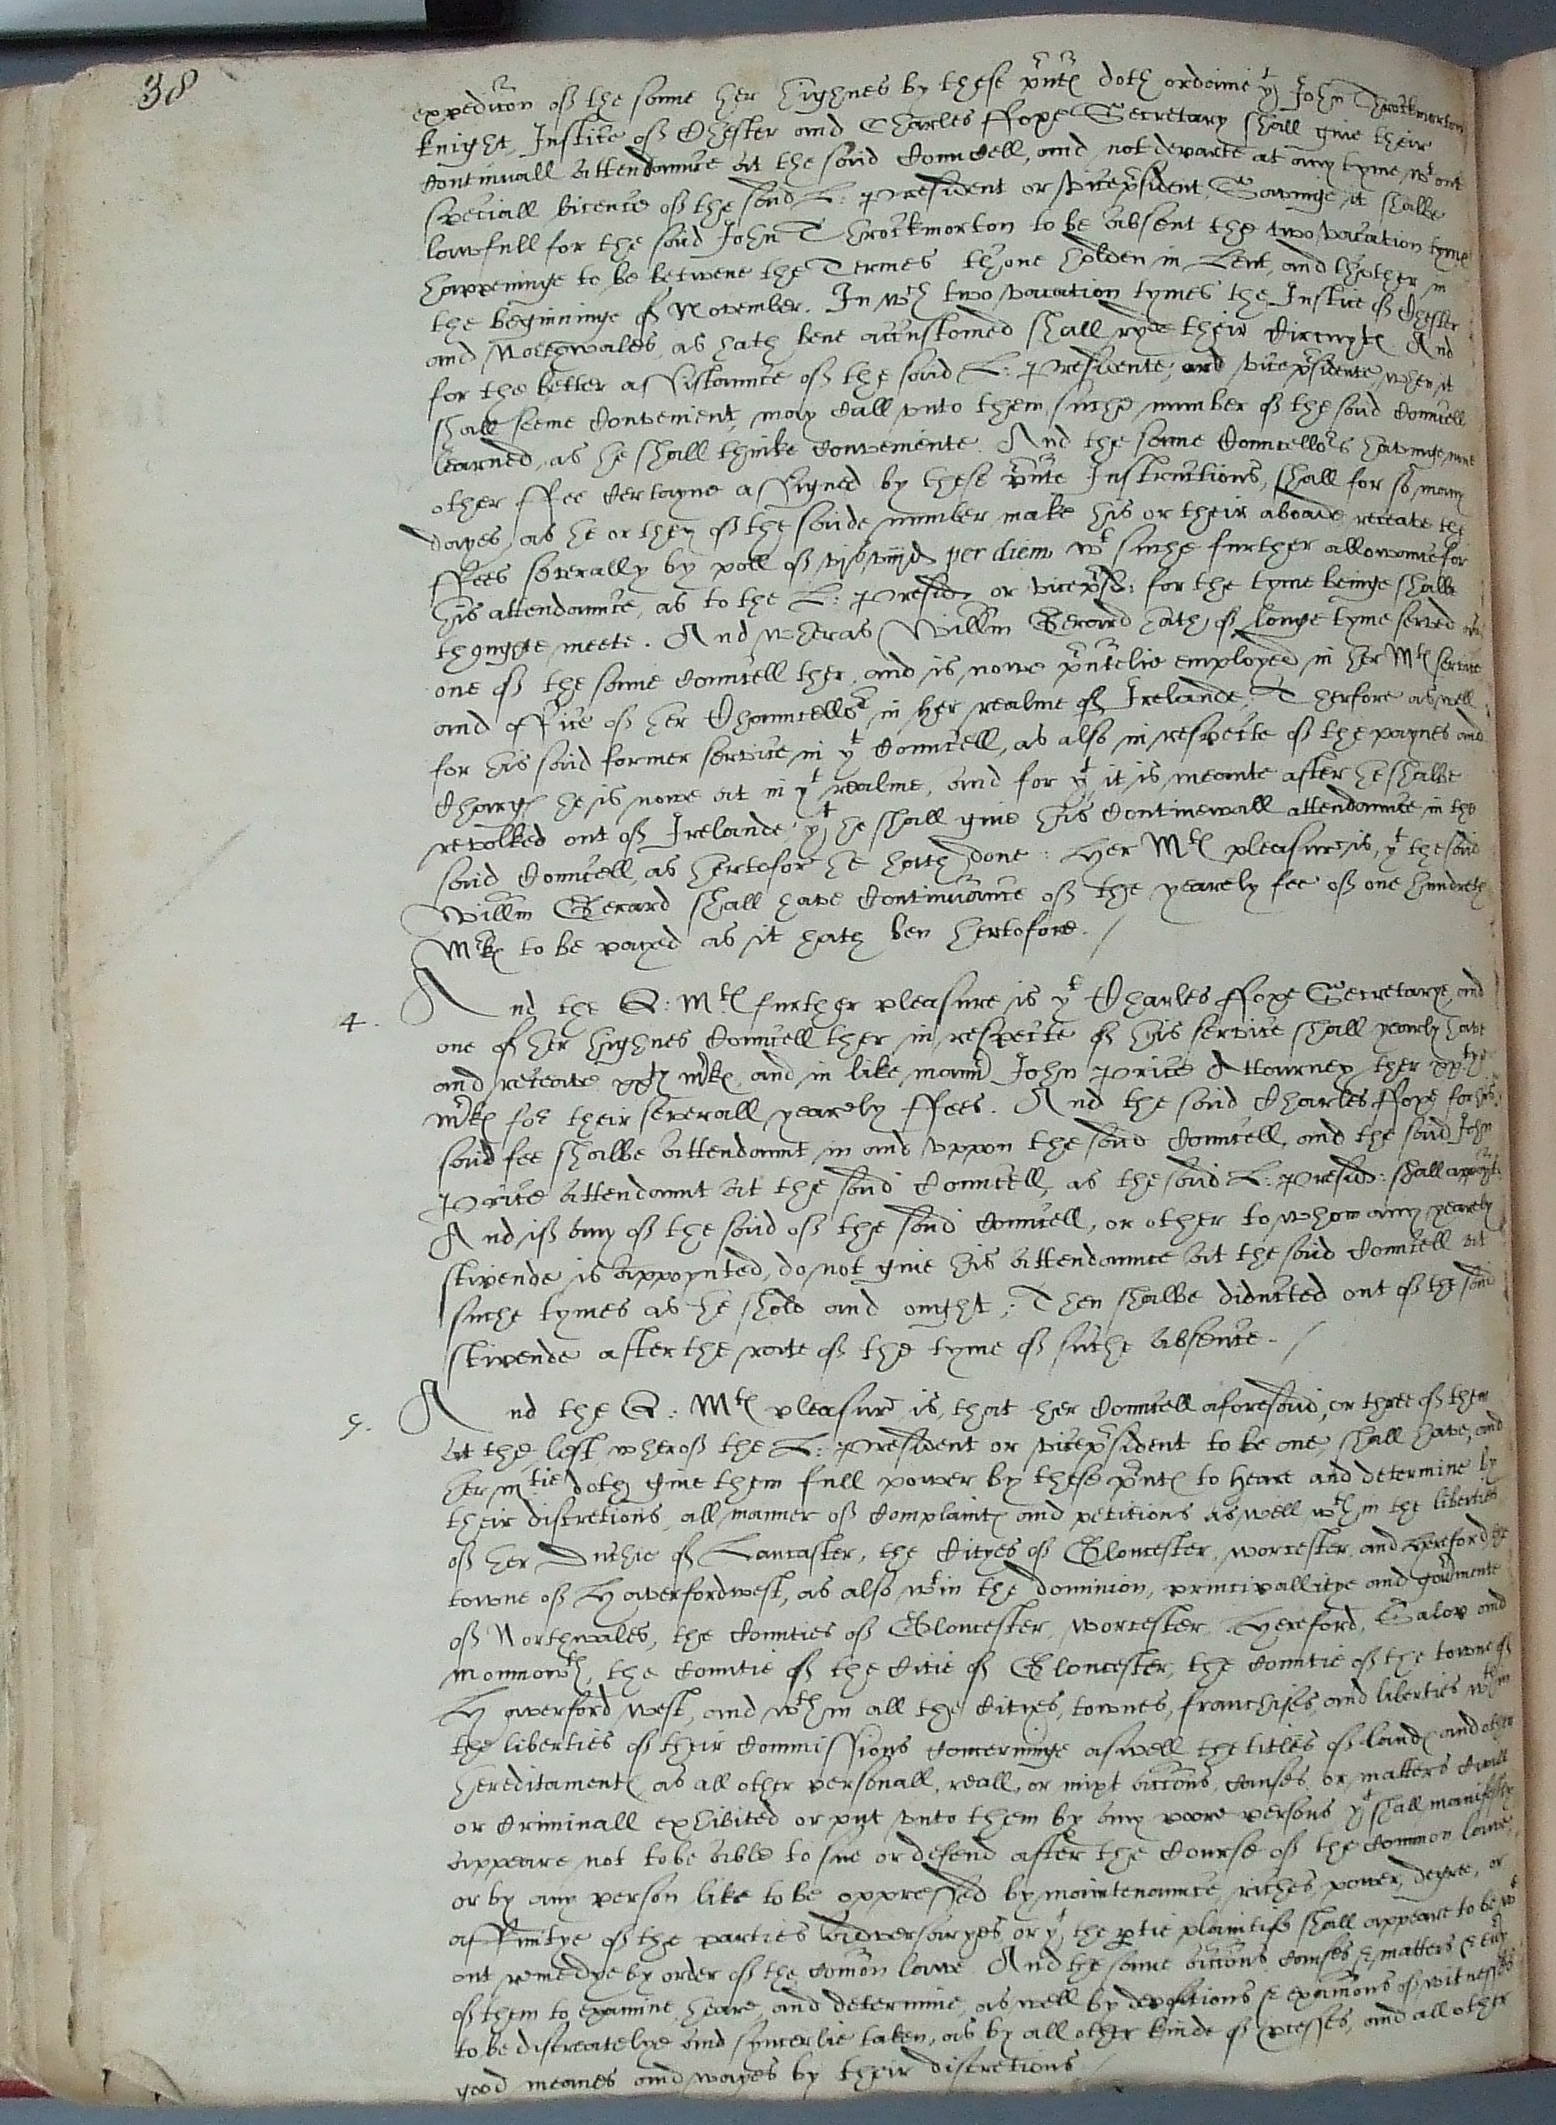 38
expedicōn off the same her highnes by these p̄nt doth ordaine yt John Throckmorton
knight, Justice off Chester and Charles ffoxe Secretary shall give their
continuall attendaunce at the said Councell, and not departe at any tyme wtout
speciall licence off the said L: President or vicep̄sident, Savinge it shalbe
lawfull for the said John Throckmorton to be absent the two vacation tymes
happeninge to be betwene the Termes thone holden in Lent, and thother in
the beginninge of November. In wch two vacation tymes the Justice of Chester
and Northwales, as hath bene accustomed shall ryde their Circuyts And
for the better assistaunce off the said L: Presidente, and vicep̄sidente, when it
shall seeme convenient, may call vnto them suche number of the said Councell
learned, as he shall thinke conveniente. And the same Councellors havinge none
other ffee certayne assigned by these p̄nte Instructions, shall for so many
dayes, as he or they off the saide number make his or their aboade receave the
ffees severally by poll off vjs viijd per diem wt suche further allowance for
his attendaunce, as to the L: Presid or vicep̄sd: for the tyme beinge shalbe
thoughte meete. And wheras Willm Gerard hath of longe tyme served as
one off the same Councell ther, and is nowe p̄ntelie employed in her Mts service
and office off her Chauncellor in her realme of Irelande, Therfore aswell
for his said former service in yt Councell, as also in respecte off the paynes and
Charges he is nowe at in yt realme, and for yt it is meante after he shalbe
revolked out off Irelande, yt he shall give his continewall attendaunce in the
said Councell, as hertofor he hath done: Her Mts pleasure is, yt the said
Willm Gerard shall have continuaunce off the yearely fee off one hundreth
Mks to be payed as it hath ben hertofore.
4. And the Q: Mts further pleasure is yt Charles ffoxe Secretarye, and
one of her highnes Councell ther in respecte of his service shall yearly have
and receave xxty mks, and in like mann̄ John Price Attourney ther xxtye
mks for their severall yearely ffees. And the said Charles ffoxe for his
said fee shalbe attendaunt in and vppon the said Councell, and the said John
Price attendaunt at the said Councell, as the said L: Presid: shall appoynt.
And iff any off the said off the said Councell, or other to whom any yearely
stipende is appoynted, do not give his attendaunce at the said Councell at
suche tymes as he shold and ought; Then shalbe diducted out of the said
stipende after the rate of the tyme of suche absence.
5. And the Q: Mts pleasure is, that her Councell aforesaid, or three off them
at the lest wheroff the L: President or vicep̄sident to be one, shall have, and
her mtie doth give them full power by these p̄nts to heare and determine by
their discretions all manner off complaints and peticions as well wthin the liberties
off her Duchie of Lancaster, the Cityes off Gloucester, worcester, and Hereford the
towne off Haverfordwest, as also wtin the dominion, principallitye and gov̄mente
off Northwales, the Counties off Gloucester, worcester, Hereford, Salop and
monmowth, the Countie of the Citie of Gloucester, the Countie off the towne of
Haverford West, and wthin all the Cities, townes, franchises, and liberties wthin
the liberties off their Commissions concerninge aswell the titles off lands and other
hereditaments as all other personall, reall, or mixt accōns, causes, or matters Civill
or Criminall exhibited or put vnto them by any poore persons yt shall manifestly
appeare not to be able to sue or defend after the Course off the Common lawe,
or by any person like to be oppressed by maintenaunce, riches, power, degree, or
affinitye off the parties adversaryes, or yt the ptie plaintiff shall appeare to be wt
out remedye by order off the com̄on lawe And the same accōns causes & matters & ev̄y
off them to examine, heare and determine, as well by depositions & examīons off witnesses
to be discreatelye and syncerlie taken, as by all other kinde of p̱cesses, and all other
good meanes and wayes by their discretions